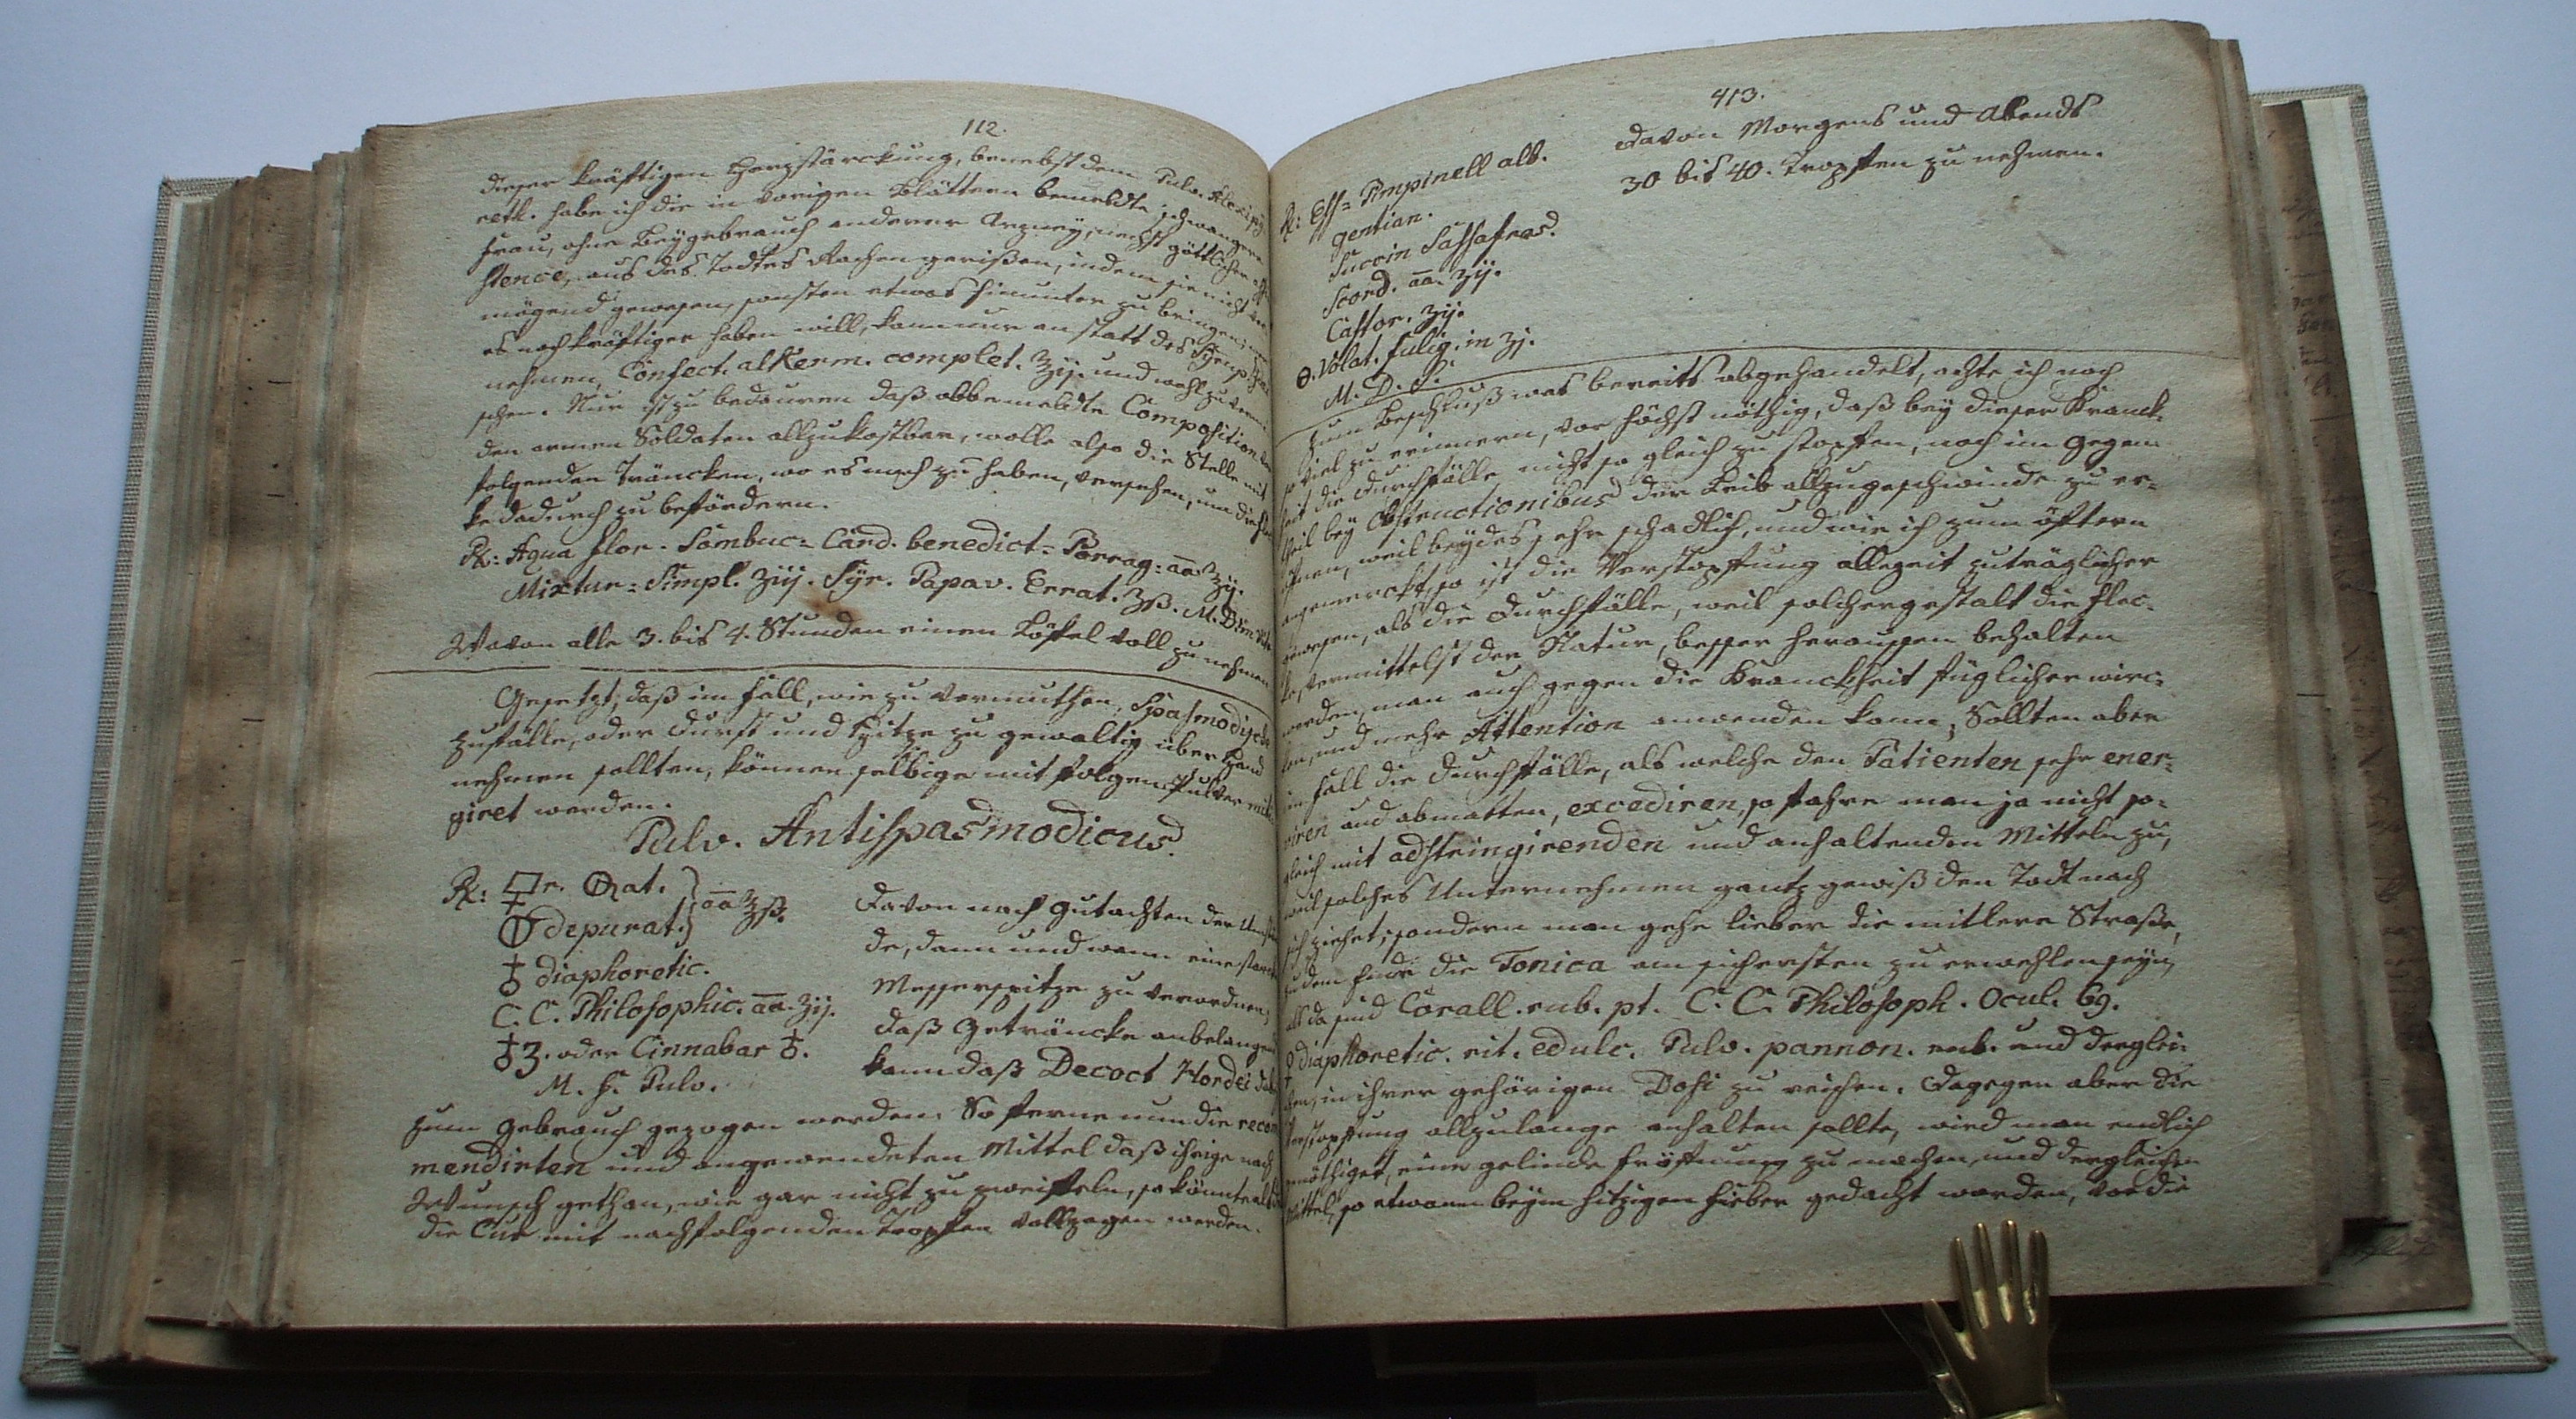 112.
dieser kräfftigen Hertzstärckung, benebst dem Pulv. Alexiph
retk. habe ich die in vorigen Blättern bemeldte schwangere
Frau, ohne Beygebrauch anderer Artzney, nechst göttlicher
stence, aus des Todtes Rachen gerißen, indem sie nicht ver
mögend gewesen, sonsten etwas hinunter zu bringen,
es noch kräfftiger haben will, kann nur an statt des Syrup
nehmen, Confect. alKerm. complet. ʒij. und wohl zu vermi
schen. Nur ist zu bedauren daß obbemeldte Composition
den armen Soldaten allzukostbar, wolle also die Stelle mit
folgenden Träncken, wo es noch zu haben, versehen, um die
ke dadurch zu befördern.
Rx: Aqua flor. Sambuc= Card. benedict= Borrag: aa ʒij.
Mixtur= Simpl. ʒiij. Syr. Papav. Errat. ʒß. M. D.
Wovon alle 3. bis 4. Stunden einen Löffel voll zu nehmen
Gesetzt, daß im fall, wie zu vermuthen, Spasmodische
Zufälle, oder Durst und Hitze zu gewaltig über Hand
nehmen sollten, können selbige mit folgend. Pulver miti
giret werden.
Pulv. Antispasmodicus.
Rx: ▭r. ⦶at.
⦶ depurat. } aa ʒß.
♁ diaphoretic.
C. C. Philosophic. aa. ʒij.
♁ʒ. oder Cinnabar ♁.
M. f. Pulv.
Davon nach Gutachten der Umstän
de, dann und wann eine starcke
Messerspitze zu verordnen,
daß Geträncke anbelangend
kann daß Decoct Hordei
zum Gebrauch gezogen werden. So ferne nun die recom
mendirten und angewendeten Mittel daß ihrige nach
Wunsch gethan, wie gar nicht zu zweiffeln, so könnte
die Cur mit nachfolgenden Tropffen vollzogen werden.
413.
Rx: Ess= Pimpinell alb.
gentian.
Succin Sassafras.
Scord. aa. ʒij.
Castor. ʒij.
⊖. Volat. fulig. in ʒj.
M. D. S.
Davon Morgens und Abends
30 bis 40. Tropffen zu nehmen.
Zum Beschluß was bereits abgehandelt, achte ich noch
so viel zu erinnern, vor höchst nöthig, daß bey dieser Kranck-
heit die Durchfälle nicht so gleich zu stopffen, noch im Gegen
theil bey Obstructionibus der Leib allzugeschwinde zu er=
öffnen, weil beydes sehr schädlich, und wie ich zum öfftern
angemerckt, so ist die Verstopffung allezeit zuträglicher
gewesen, als die Durchfälle, weil solchergestalt die flec-
ke vermittelst der Natur, besser heraussen behalten
werden, man auch gegen die Kranckheit füglicher wirc=
ken, und mehr Attention anwenden kann, Sollten aber
im fall die Durchfälle, als welche den Patienten sehr ener=
viren und abmatten, excediren, so fahre man ja nicht so=
gleich mit adstringirenden und anhaltenden Mitteln zu,
weil solches Unternehmen gantz gewiß den Todt nach
sich ziehet, sondern man gehe lieber die mitlere Straße,
zu dem Ende die Tonica am sichersten zu erwehlen seyn,
als da sind Corall. rub. pt. C. C. Philosoph. Ocul. 69.
♁ diaphoretic. rit. edulc. Pulv. pannon. rub. und derglei-
chen, in ihrer gehörigen Dosi zu reichen. Dagegen aber die
Verstopffung allzulange anhalten sollte, wird man endlich
genöthiget, eine gelinde Eröffnung zu machen, und dergleichen
Mittel, so etwann beym hitzigen Fieber gedacht worden, vor die